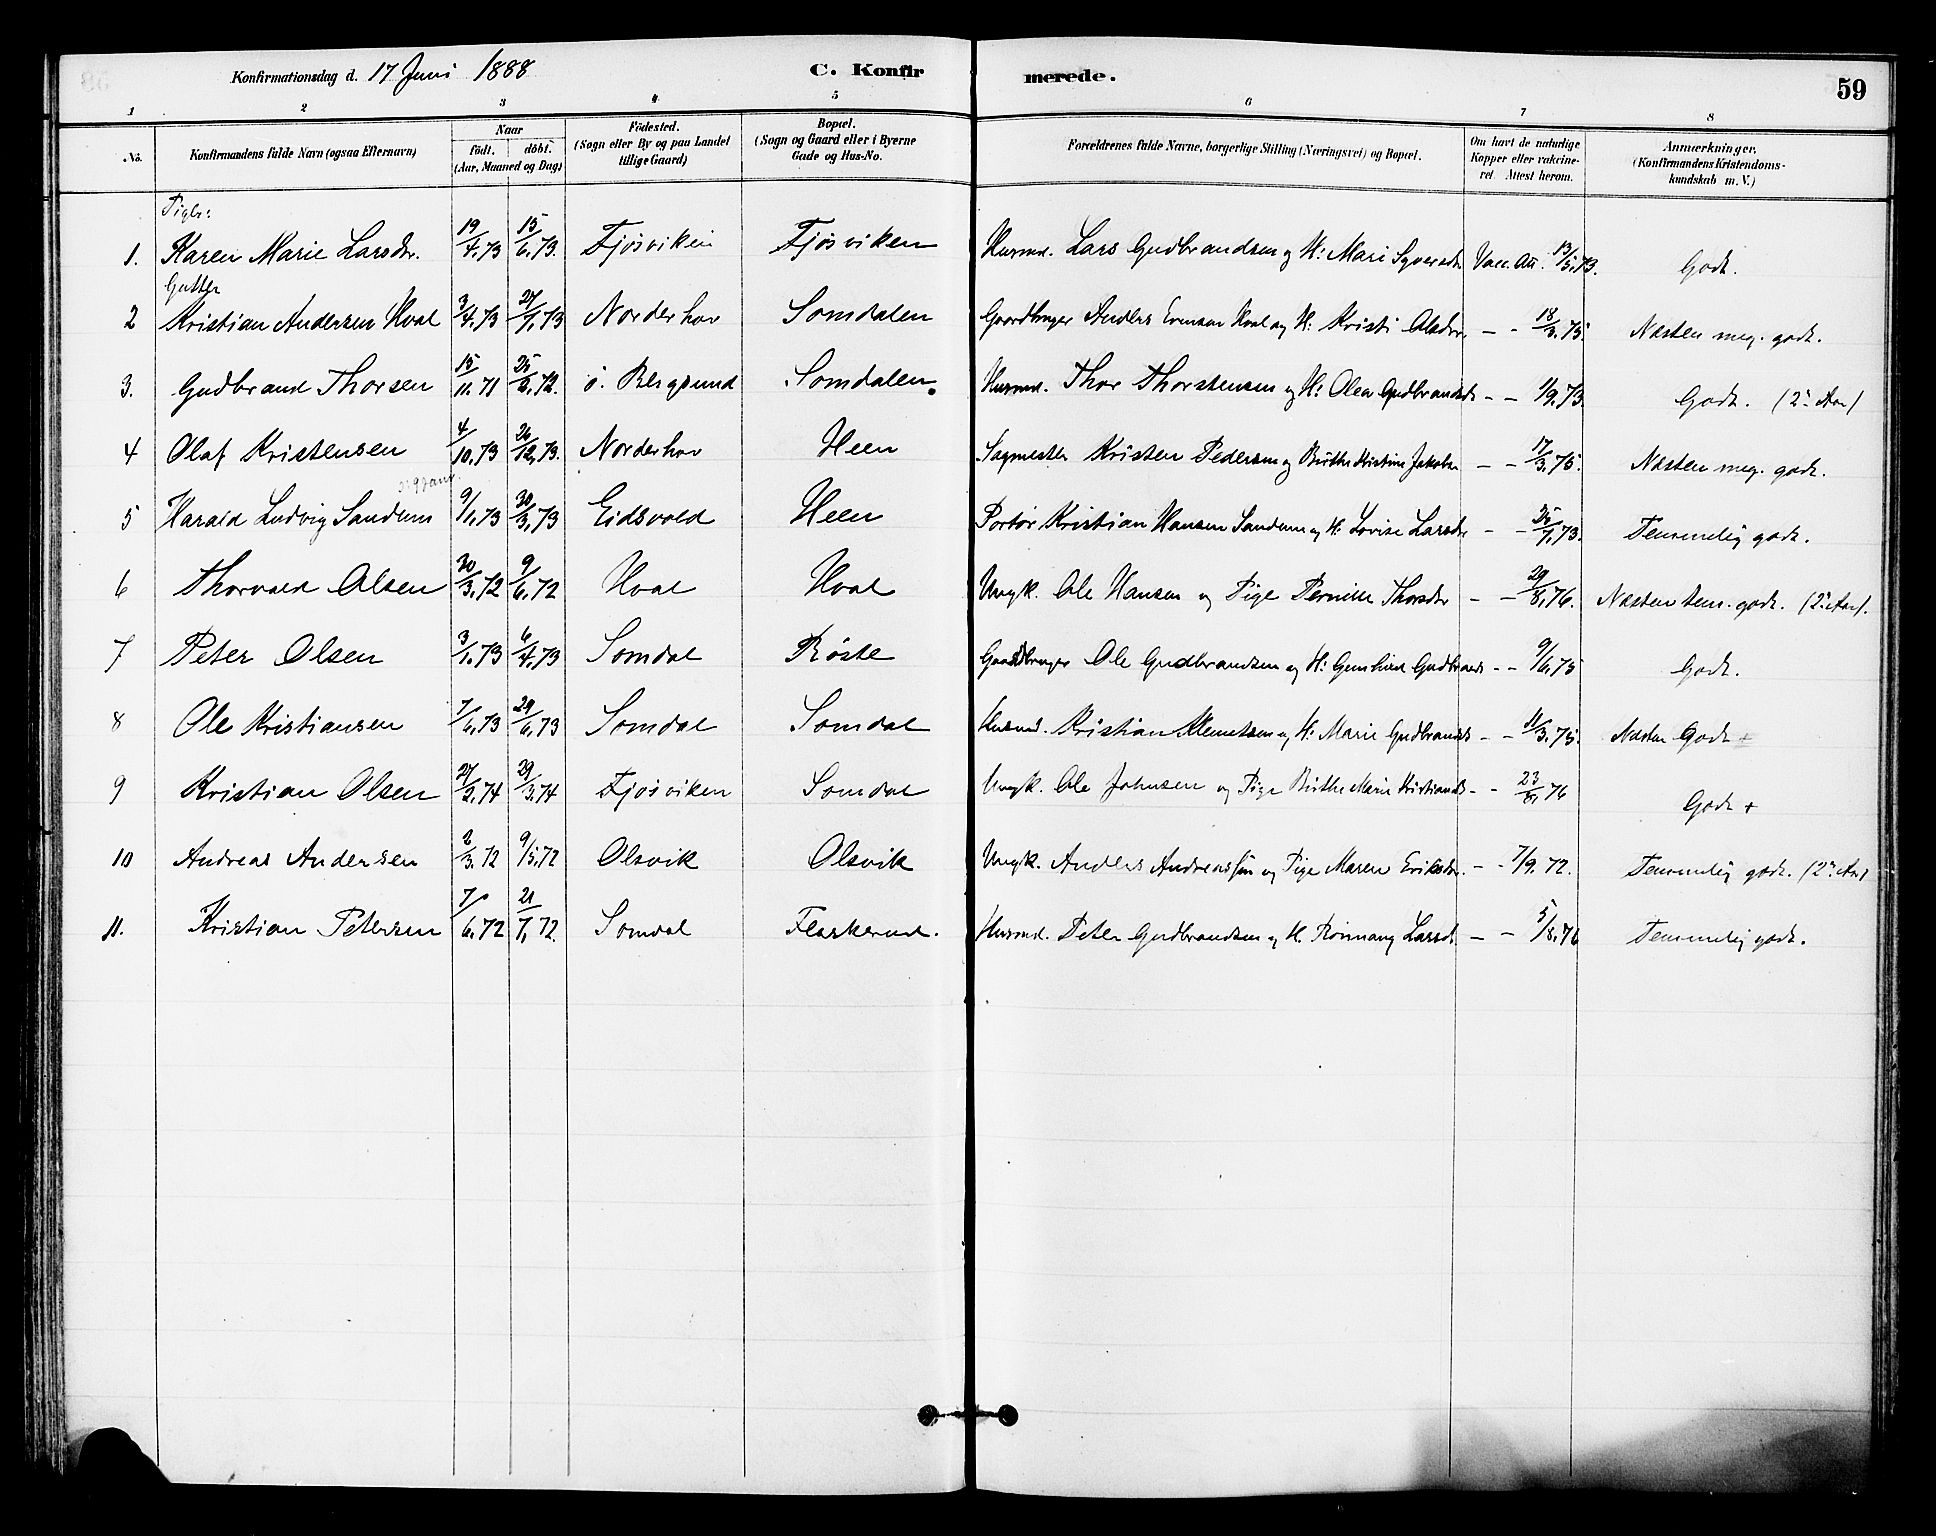 Konfirmationsdag d. 17 Juni 1888 C. Konfir merede. 59
1 2 3 4 5 6 7 8
No. Konfirmandens fulde Navn (ogsaa Efternavn) Naar födt. döbt. (Aar, Maaned og Dag) Födested. (Sogn eller By og paa Landet tillige Gaard) Bopæl. (Sogn og Gaard eller i Byerne Gade og Hus-No. Forældrenes fulde Navne, borgerlige Stilling (Næringsvei) og Bopæl. Om havt de naturlige Kopper eller vakcineret. Attest herom. Anmærkninger. (Konfirmandens Kristendomskundskab m. V.)
Piger:
1. Karen Marie Larsdr. 19/4.73 15/6.73. Fjøsviken Fjøsviken Husmd. Lars Gudbrandsen og H: Mari Syversdr Vacc. Att. 13/5.73. Godt.
Gutter
2 Kristian Andersen Hval 3/4.73 27/7.73 Norderhov Somdalen Gaardbruger Anders Evensen Hval og H: Kristi Olsdr. - - 18/3.75. Næsten meg. godt.
3. Gudbrand Thorsen 15/11.71 25/2.72. ö. Bergsund Somdalen. Husmd. Thor Thorstensen og H: Olea Gudbrandsdr - - 1/9.73. Godt. (2det Aar)
4 Olaf Kristensen 4/10.73 26/12.73. Norderhov Heen Sagmester Kristen Pedersen og Birthe Kristine Jakobs - - 17/3.75. Næsten meg. godt.
5 Harald Ludvig Sandum 9/1.73 30/3.73 Eidsvold Heen Portør Kristian Hansen Sandum og H: Lovise Larsdr - - 25/7.73. Temmelig godt.
6 Thorvald Olsen 30/3.72 9/6.72 Hval Hval Ungk. Ole Hansen og Pige Pernille Thorsdr - - 29/8.76. Næsten tem. godt. (2det Aar).
7 Peter Olsen 3/1.73 6/4.73 Somdal Røste Gaardbruger Ole Gudbrandsen og H: Gunhild Gudbrands - - 9/6.75 Godt.
8 Ole Kristiansen 7/6.73 29/6.73 Somdal Somdal Husmd. Kristian Klemetsen og H: Marie Gudbrands - - 11/3.75. Næsten Godt +
9 Kristian Olsen 27/2.74 29/3.74 Fjøsviken Somdal Ungk. Ole Johnsen og Pige Birthe Marie Kristiansd - - 23/8.76 Godt +
10 Andreas Andersen 2/3.72 9/5.72 Olsvik Olsvik Ungk. Anders Andreassen og Pige Maren Eriksdr. - - 7/9.72. Temmelig godt. (2det Aar)
11. Kristian Petersen 7/6.72 21/7.72. Somdal Flaskerud. Husmd. Peter Gudbrandsen og H. Rønnaug Larsdr - - 5/8.76 Temmelig godt.